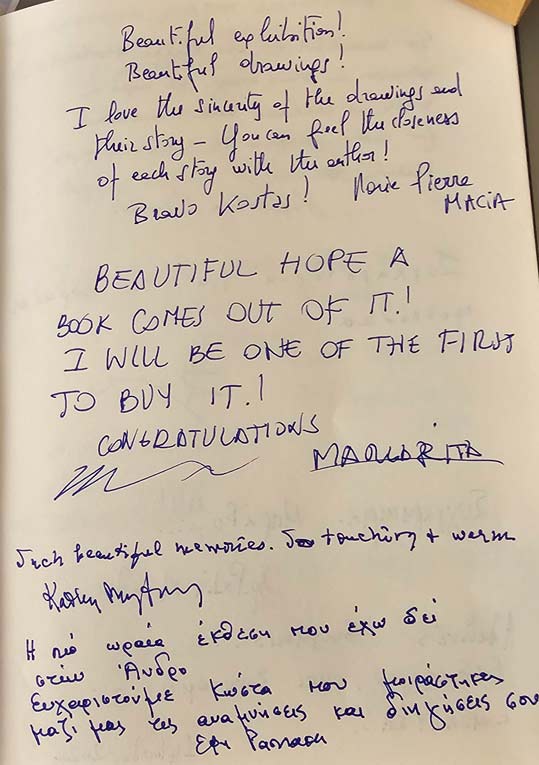 Beautiful exhibition!
Beautiful drawings!
I love the sincerity of the drawings and
their story – You can feel the closeness
of each story with the author!
Bravo Kostas! Marie Pierre
MACIA
BEAUTIFUL HOPE A
BOOK COMES OUT OF IT.!
I WILL BE ONE OF THE FIRST
TO BUY IT.!
CONGRATULATIONS
MARGARITA
Such beautiful memories. So touching + warm
Η πιό ωραία έκθεση που έχω δεί
στην Άνδρο
Ευχαριστούμε Κώστα που μοιράστηκες
μαζί μας τις αναμνήσεις και διηγήσεις σου
Έφη